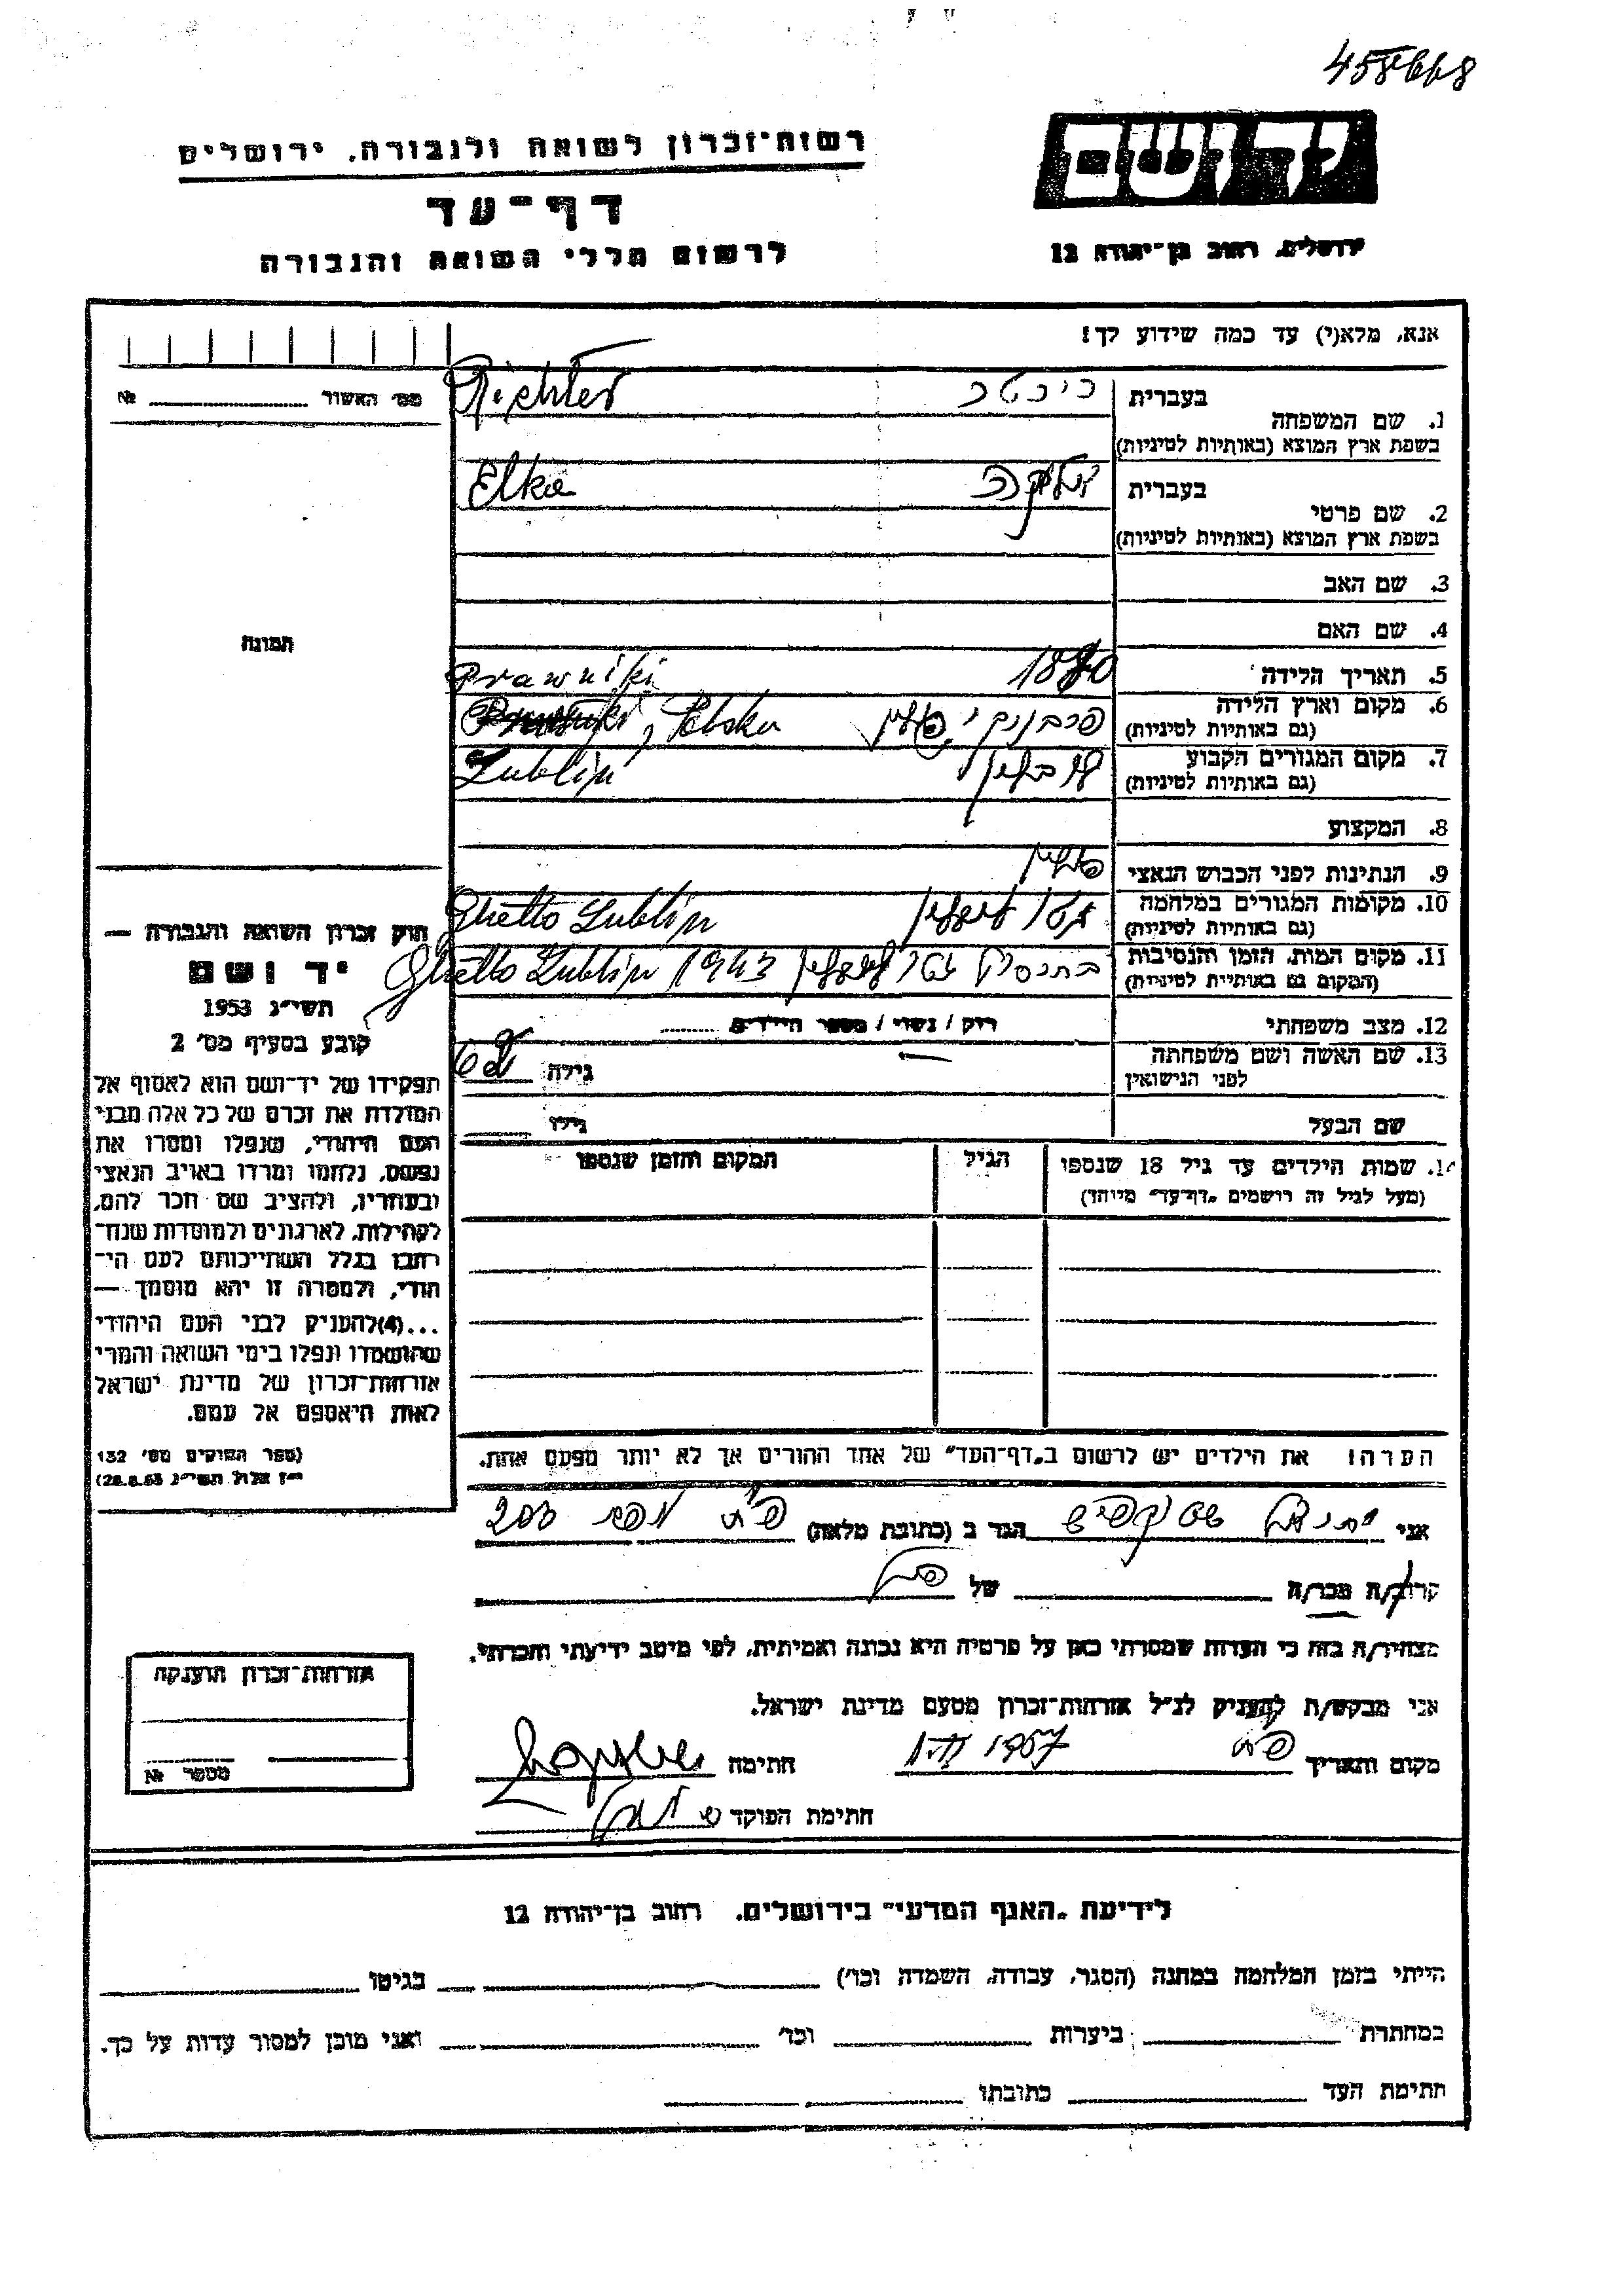 458668
יד ושם
רשות־זכרון לשואה ולגבורה, ירושלים
דף־עד
לרשום חללי השואה והגבורה
ירושלים, רחוב בן־יהודה 12
אנא, מלא(י) עד כמה שידוע לך!
מס׳ האשור № 
1. שם המשפחה
בעברית ריכטר Richter
בשפת ארץ המוצא (באותיות לטיניות)
2. שם פרטי
בעברית אלקה Elka
בשפת ארץ המוצא (באותיות לטיניות)
3. שם האב
4. שם האם
תמונה
5. תאריך הלידה 1880
6. מקום וארץ הלידה
(גם באותיות לטיניות)
Prawniki
Polska
7. מקום המגורים הקבוע לובלין Lublin
(גם באותיות לטיניות)
8. המקצוע
9. הנתינות לפני הכבוש הנאצי פולין
10. מקומות המגורים במלחמה גטו לובלין Ghetto Lublin
(גם באותיות לטיניות)
11. מקום המות, הזמן והנסיבות גטו לובלין 1943 Ghetto Lublin
(המקום גם באותיות לטיניות)
12. מצב משפחתי רווק / נשוי / מספר הילדים
13. שם האשה ושם משפחתה
לפני הנישואין
גילה
שם הבעל גילו
14. שמות הילדים עד גיל 18 שנספו הגיל המקום והזמן שנספו
(מעל לגיל זה רושמים „דף־עד״ מיוחד)
הערה! את הילדים יש לרשום ב„דף־העד״ של אחד ההורים אך לא יותר מפעם אחת.
חוק זכרון השואה והגבורה —
יד ושם
תשי״ג 1953
קובע בסעיף מס׳ 2
תפקידו של יד־ושם הוא לאסוף אל
המולדת את זכרם של כל אלה מבני
העם היהודי, שנפלו ומסרו את
נפשם, נלחמו ומרדו באויב הנאצי
ובעוזריו, ולהציב שם וזכר להם,
לקהילות, לארגונים ולמוסדות שנח־
רבו בגלל השתייכותם לעם הי־
הודי, ולמטרה זו יהא מוסמך —
...(4)להעניק לבני העם היהודי
שהושמדו ונפלו בימי השואה והמרי
אזרחות־זכרון של מדינת ישראל
לאות היאספם אל עמם.
(ספר החוקים מס׳ 132
י״ז אלול תשי״ג 28.8.53)
אני הגר ב (כתובת מלאה)
קרוב/ה מכר/ה של
מצהיר/ה בזה כי העדות שמסרתי כאן על פרטיה היא נכונה ואמיתית, לפי מיטב ידיעתי והכרתי.
אני מבקש/ת להעניק לנ״ל אזרחות־זכרון מטעם מדינת ישראל.
מקום ותאריך חתימה
חתימת הפוקד
אזרחות־זכרון הוענקה
מספר №
לידיעת „האגף המדעי״ בירושלים, רחוב בן־יהודה 12
הייתי בזמן המלחמה במחנה (הסגר, עבודה, השמדה וכו׳) בגיטו
במחתרת ביערות וכו׳ ואני מוכן למסור עדות על כך.
חתימת העד כתובתו